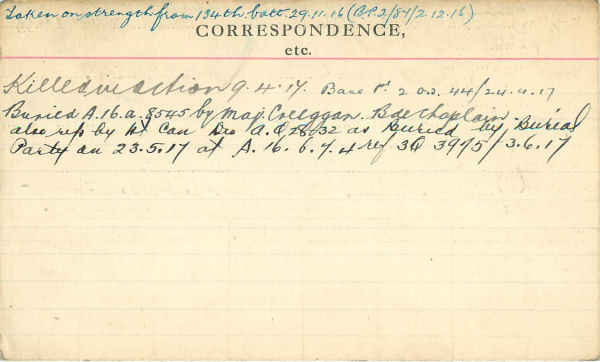 Taken on strength from 134th batt. 29.11.16 (B.P. 2/84/2.12.16)
CORRESPONDENCE,
etc.
Killed in action 9.4.17. Base Pt. 2 O.O. 44/24.4.17
Buried A.16.a.8545 by Maj. Creeggan. Bde Chaplain.
also rep by Can Div A.Q 28/32 as Buried by Burial
Party on 23.5.17 at A.16.b.7.4 ref 3Q 3975/3.6.17